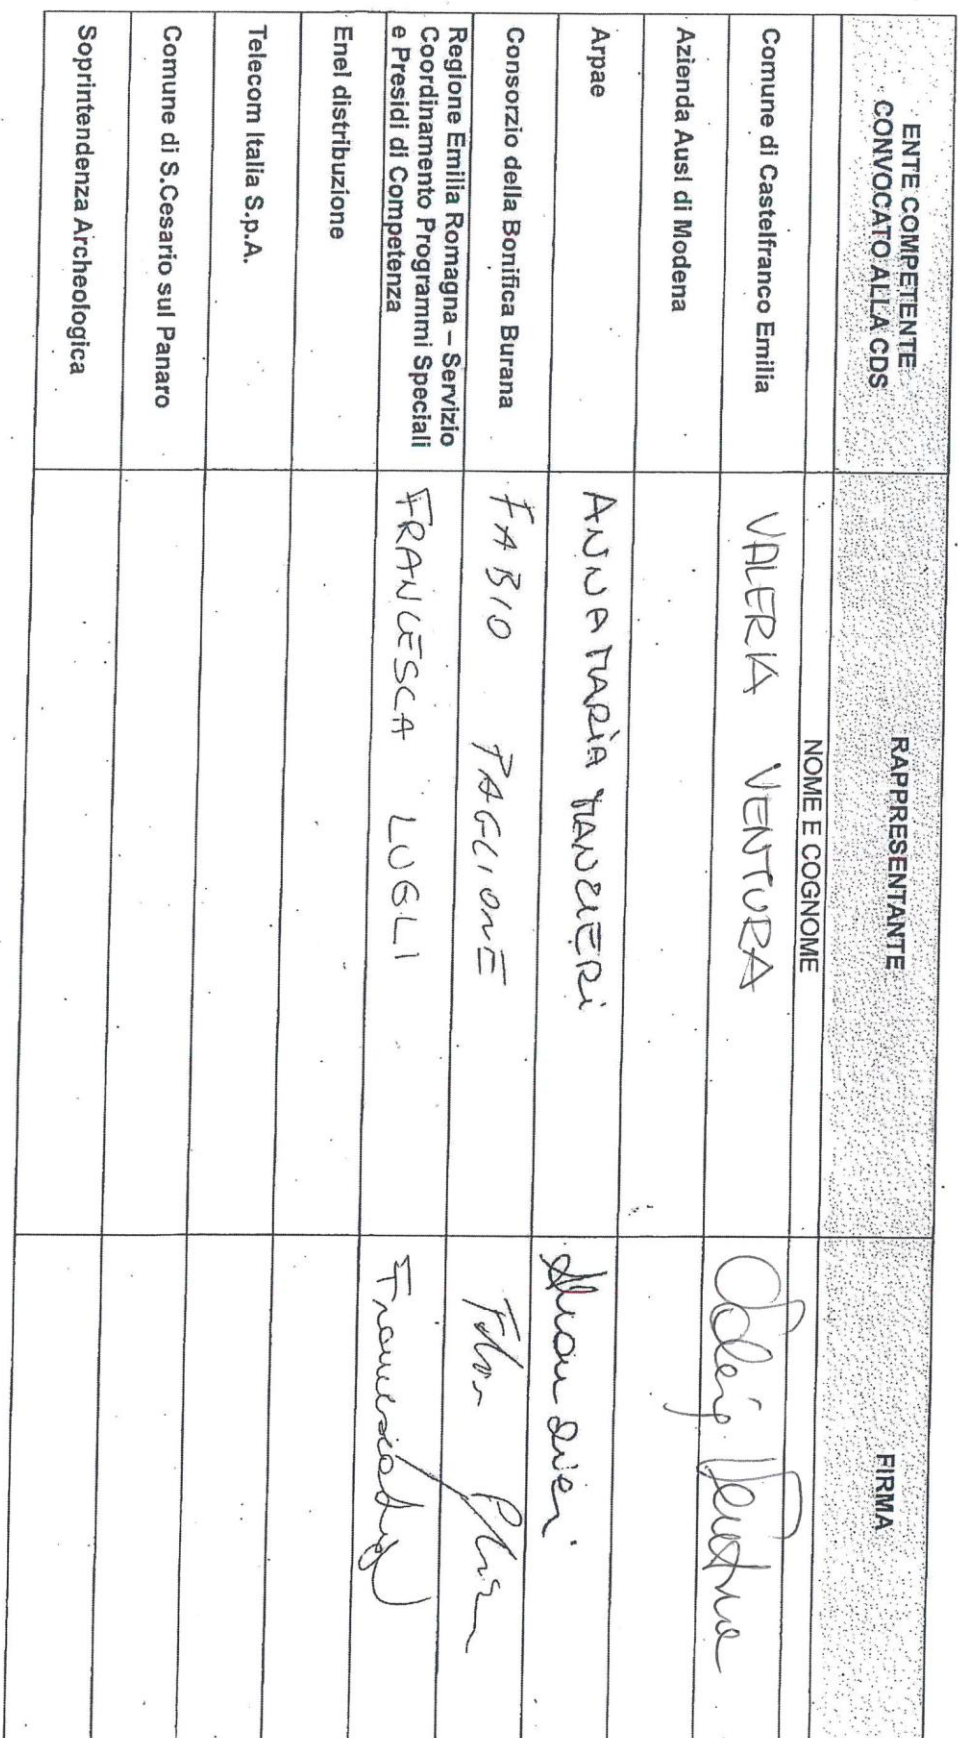 ENTE COMPETENTE
CONVOCATO ALLA CDS
RAPPRESENTANTE
FIRMA
NOME E COGNOME
Comune di Castelfranco Emilia
VALERIA VENTURA
Valeria Ventura
Azienda Ausl di Modena
Arpae
ANNA MARIA MANCIERI
Consorzio della Bonifica Burana
FABIO PAGLIONE
Regione Emilia Romagna – Servizio
Coordinamento Programmi Speciali
e Presidi di Competenza
FRANCESCA LUGLI
Enel distribuzione
Telecom Italia S.p.A.
Comune di S.Cesario sul Panaro
Soprintendenza Archeologica